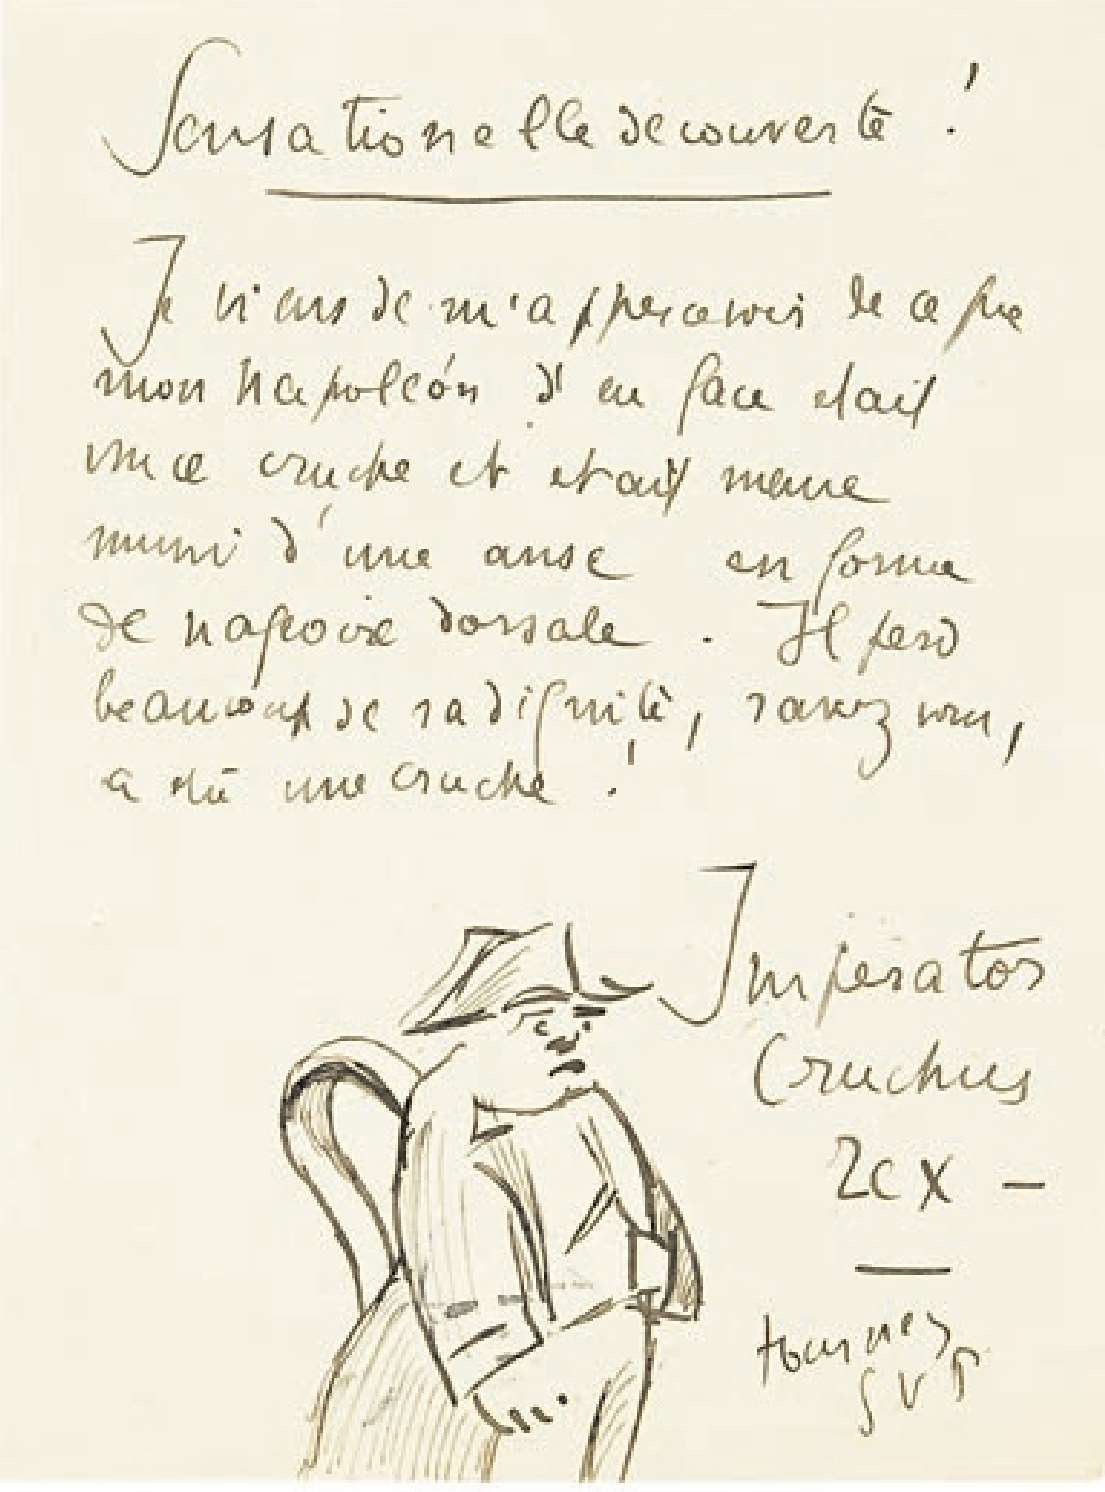 Sensationelle decouverte !
Je viens de m'appercevoir de ce que
mon Napoleón d'en face etait
une cruche et etait meme
muni d'une anse en forme
de nageoire dorsale . Il perd
beaucoup de sa dignité, savez vous,
a etü une cruche !
Imperator
Cruchus
Rex –
tournez
SVP